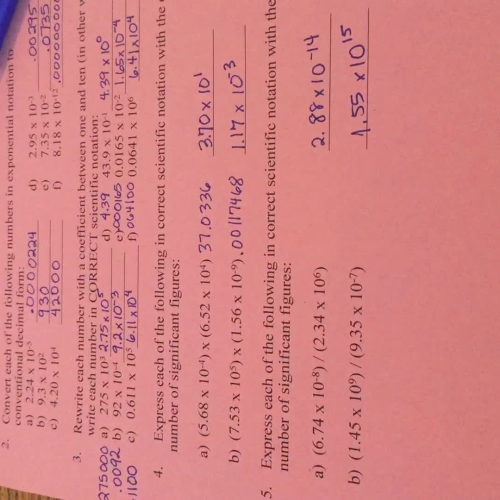 2. Convert each of the following numbers in exponential notation to
conventional decimal form:
a) 2.24 x 10⁻⁵ .0000224 d) 2.95 x 10⁻³ .00295
b) 9.3 x 10² 930 e) 7.35 x 10⁻² .0735
c) 4.20 x 10⁴ 42000 f) 8.18 x 10⁻¹²
3. Rewrite each number with a coefficient between one and ten (in other
write each number in CORRECT scientific notation:
275000 a) 275 x 10³ 2.75 x 10⁵ d) 4.39 43.9 x 10⁻¹ 4.39 x 10⁰
.0092 b) 92 x 10⁻⁴ 9.2 x 10⁻³ e) .000165 0.0165 x 10⁻² 1.65 x 10⁻⁴
1100 c) 0.611 x 10⁵ 6.11 x 10⁴ f) 064100 0.0641 x 10⁶ 6.41 x 104
4. Express each of the following in correct scientific notation with the
number of significant figures:
a) (5.68 x 10⁻⁴) x (6.52 x 10⁴) 37.0336 3.70 x 10¹
b) (7.53 x 10⁵) x (1.56 x 10⁻⁹) .00117468 1.17 x 10⁻³
5. Express each of the following in correct scientific notation with the
number of significant figures:
a) (6.74 x 10⁻⁸) / (2.34 x 10⁶) 2.88 x 10⁻¹⁴
b) (1.45 x 10⁹) / (9.35 x 10⁻⁷) 1.55 x 10¹⁵